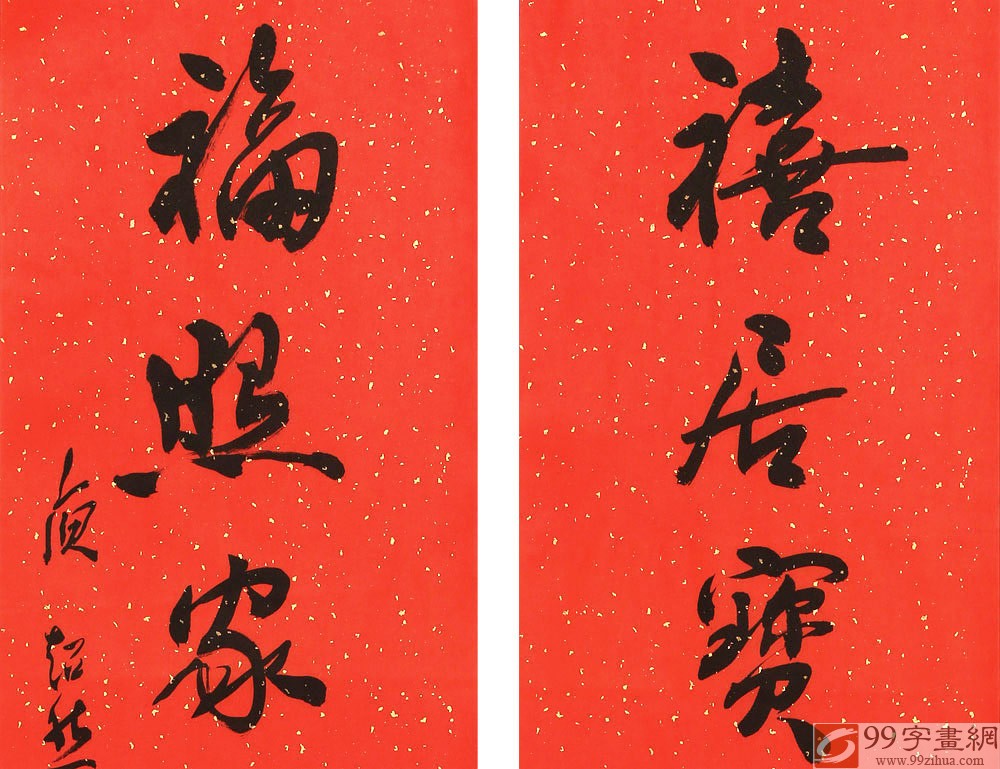 禧居寶
福照家
貞 超然
99字畫網
www.99zihua.com